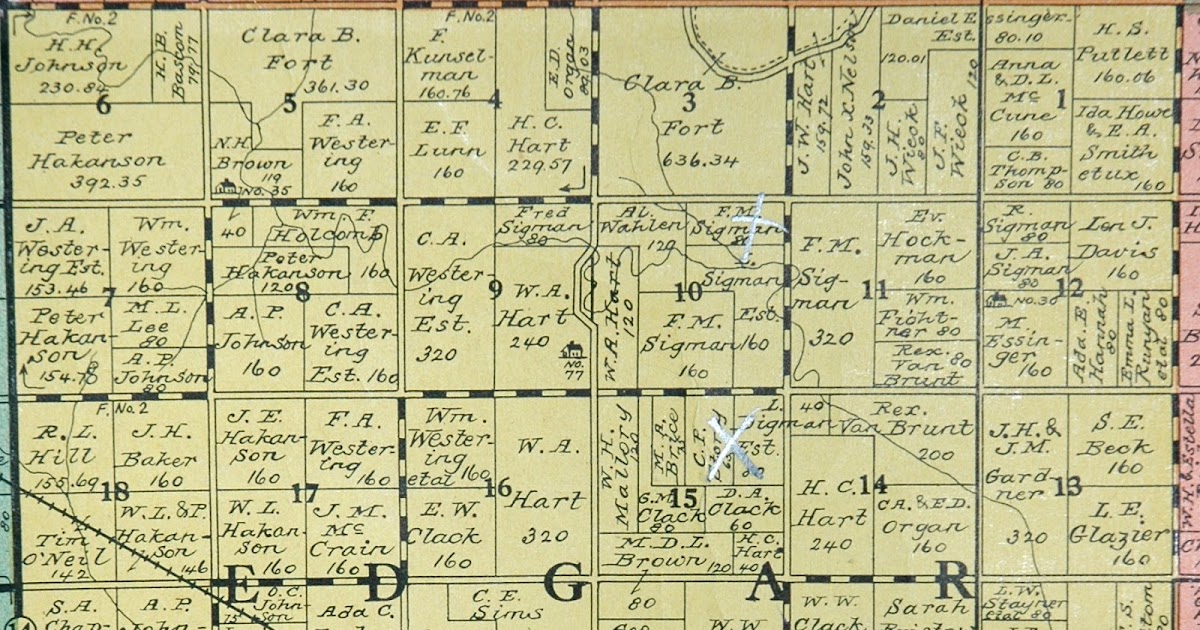 F. No. 2
H. H.
Johnson
230.84
6
H. B.
Bastom
79.77
Peter
Hakanson
392.35
Clara B.
Fort
361.30
5
N. H.
Brown
119
No. 35
F. A.
Wester-
ing
160
F. No. 2
F.
Kunsel-
man
160.76
4
E. D.
Organ
80.03
E. F.
Lunn
160
H. C.
Hart
229.57
Clara B.
3
Fort
636.34
J. W. Hart
159.72
John X. Nelson
159.33
2
Daniel Essinger
Est.
120.01
120
J. H.
Wieck
80
J. F.
Wieck
80.10
Anna
& D. L.
Mc
Cune
160
1
C. B.
Thomp-
son 80
H. S.
Putlett
160.06
Ida Howe
& E. A.
Smith
et ux
160
J. A.
Wester-
ing Est.
153.46
7
Wm.
Wester-
ing
160
Peter
Hakan-
son
154.78
M. L.
Lee
80
A. P.
Johnson
80
40
Wm. F.
Holcomb
160
Peter
Hakanson
120
8
A. P.
Johnson
160
C. A.
Wester-
ing
Est. 160
C. A.
Wester-
ing
Est.
320
9
Fred
Sigman
80
W. A.
Hart
240
No.
77
Al.
Wahlen
120
F. M.
Sigman
80
W. A. Hart
120
L.
Sigman
Est.
160
10
F. M.
Sigman
160
F. M.
Sig-
man
320
11
Ev.
Hock-
man
160
Wm.
Ficht-
ner 80
Rex. 80
Van
Brunt
R.
Sigman
80
J. A.
Sigman
80
No. 30
12
M.
Essin-
ger
160
Lon J.
Davis
160
Ada E.
Hannah
80
Emma L.
Runyan
etal 80
F. No. 2
R. L.
Hill
155.69
18
J. H.
Baker
160
Tim
O'Neil
142
W. L. & P.
Hakan-
son
146
J. E.
Hakan-
son
160
17
F. A.
Wester-
ing
160
W. L.
Hakan-
son
160
J. M.
Mc
Crain
160
Wm.
Wester-
ing
etal 160
16
W. A.
Hart
320
E. W.
Clack
160
W. H.
Mallory
120
M. A.
Brice
C. P.
L.
Sigman
Est.
80
40
15
G. M.
Clack
80
D. A.
Clack
60
M. D. L.
Brown 120
H. C.
Hart
40
Rex.
Van Brunt
200
14
H. C.
Hart
240
C. A. & E. D.
Organ
160
J. H. &
J. M.
Gard-
ner
320
13
S. E.
Beck
160
L. E.
Glazier
160
W. H. & Estella
80
E D G A R
S. A.
Chap-
A. P.
John-
O. C.
John-
son
15
Ada C.
C. E.
Sims
80
Geo
W. W.
W. W.
Clack
Sarah
L. W.
Stayner
etal 80